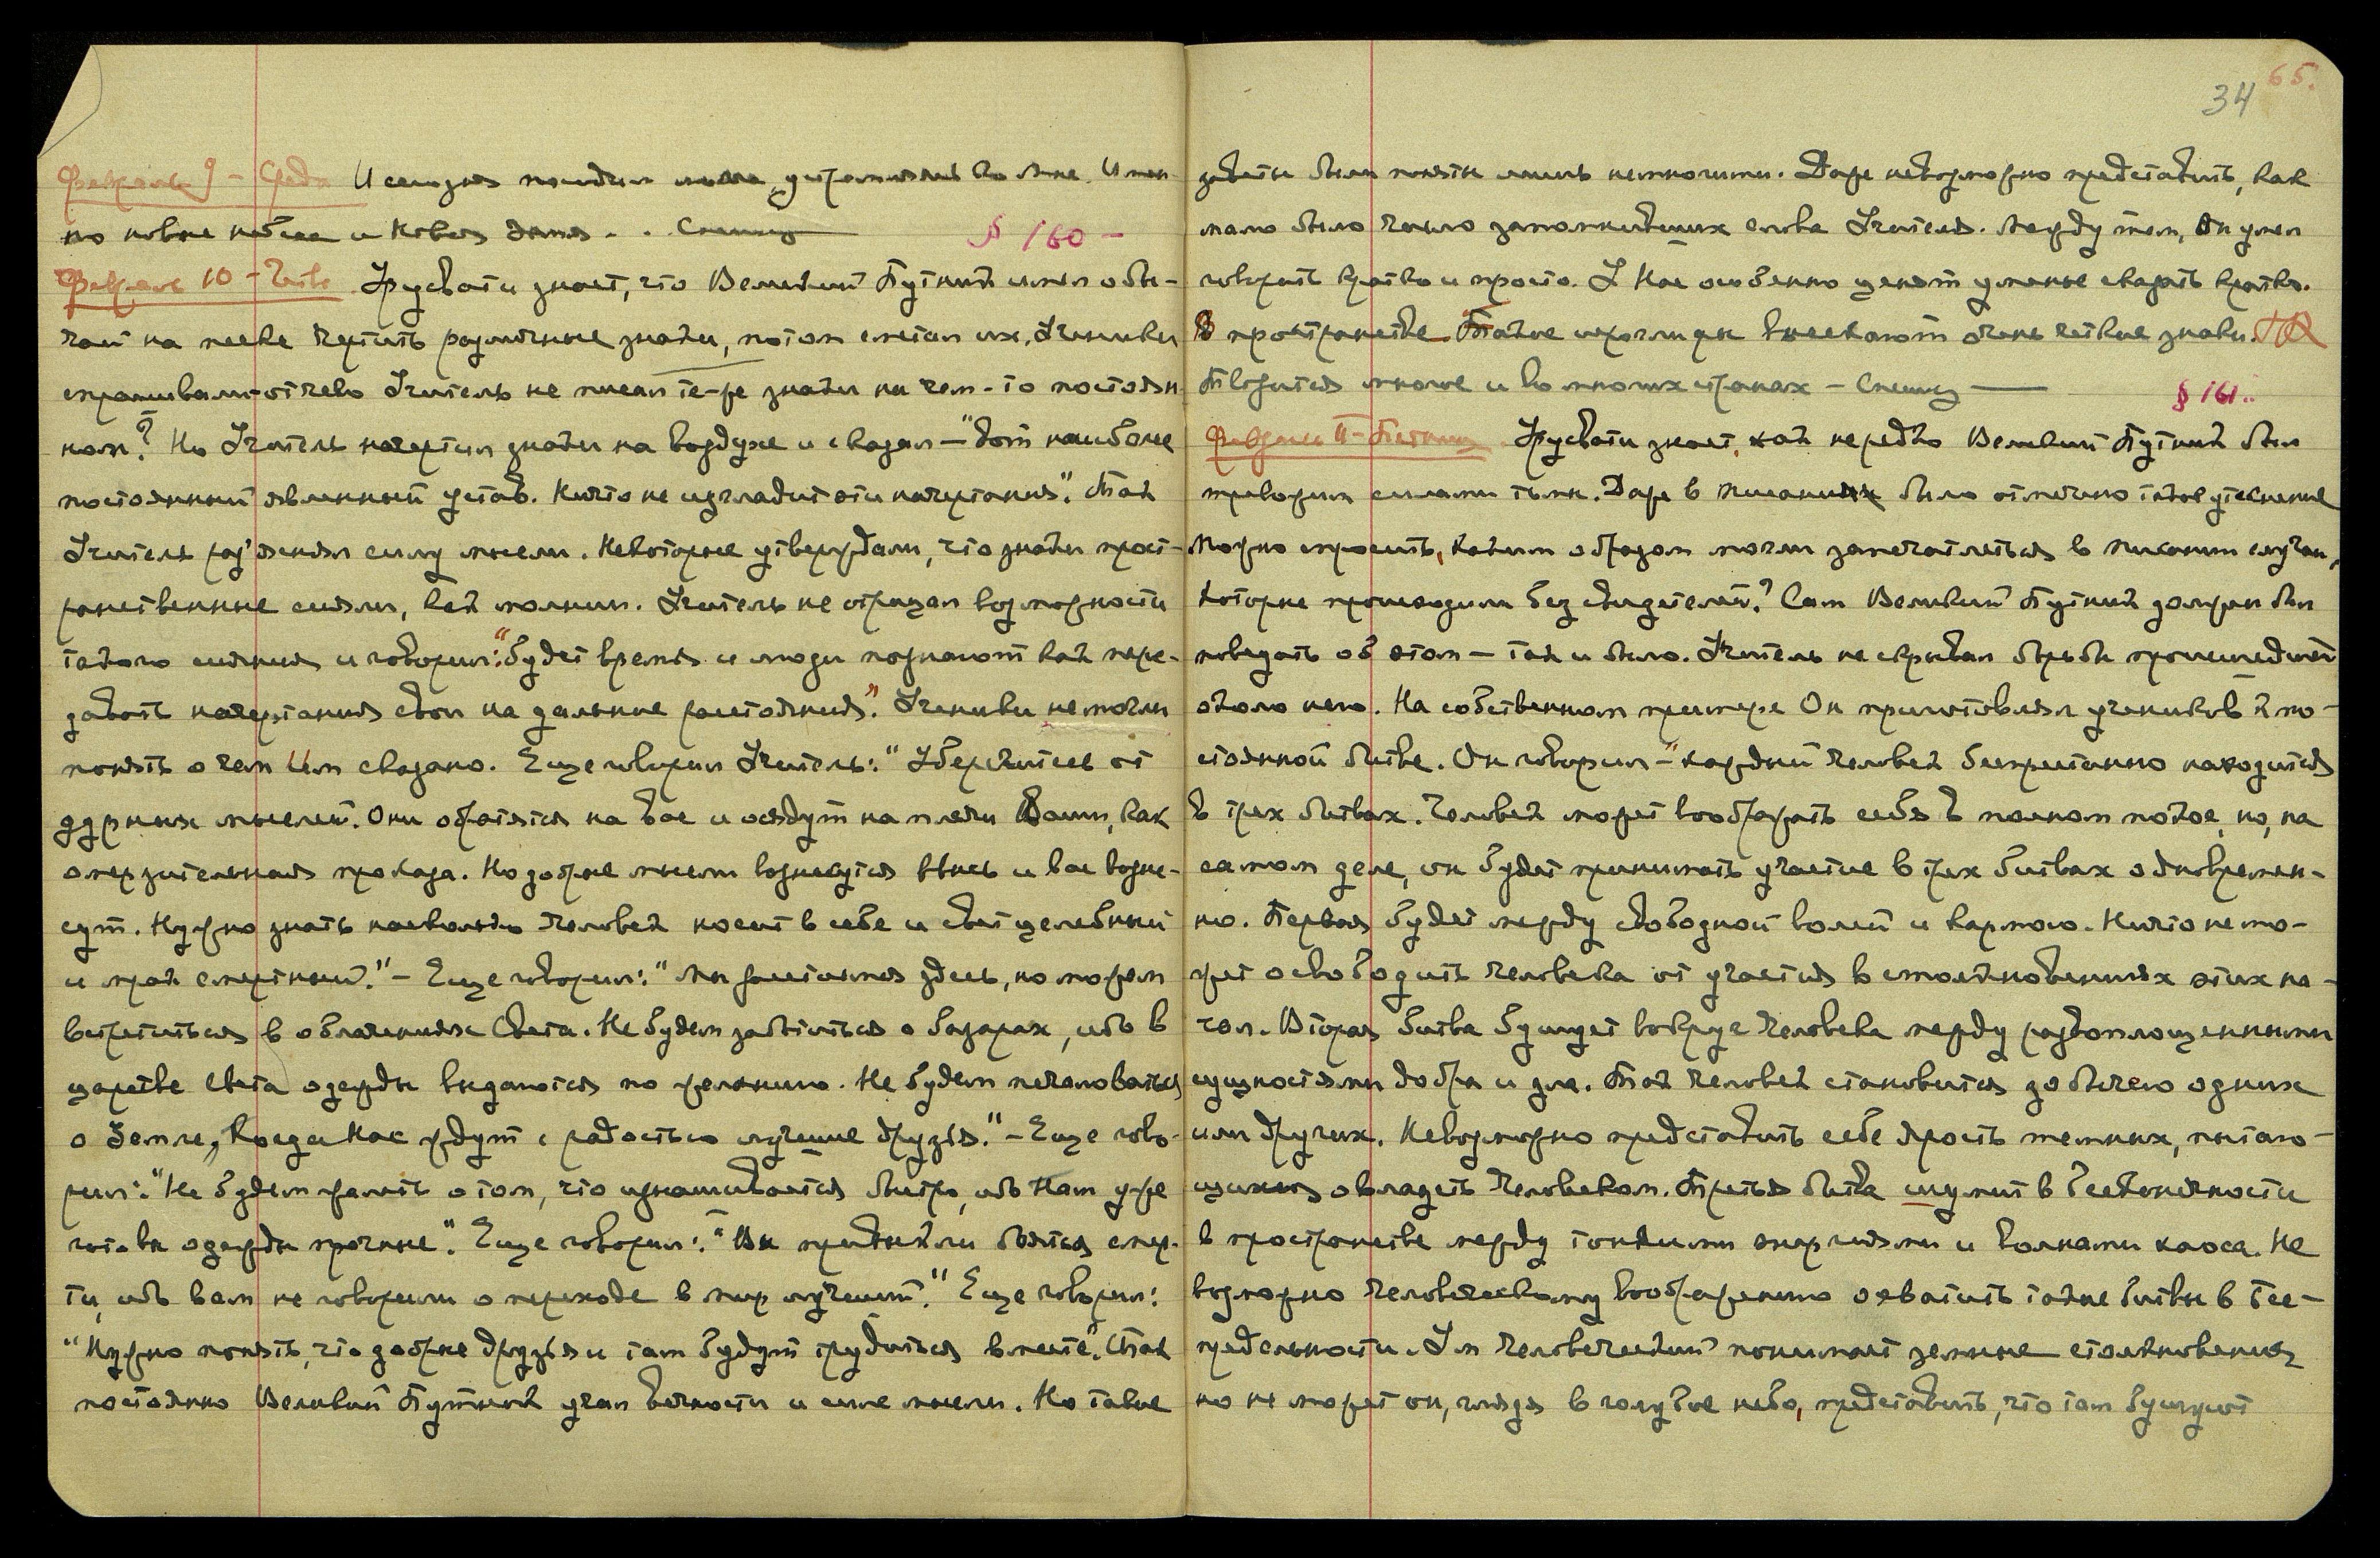 34 65.
Февраль 9 – Среда И сегодня пошлем мысль, устремляясь ко Мне. Имен-
но новые небеса и новая земля. . Спешу
§ 160 –
Февраль 10 – Четв. Урусвати знает, что Великий Путник имел обы-
чай на песке чертить различные знаки, потом сметал их. Ученики
спрашивали – отчего Учитель не писал те-же знаки на чем-то постоян-
ном? Но Учитель начертил знаки на воздухе и сказал – "Вот наиболее
постоянный явленный устав. Ничто не изгладит эти начертания". Так
Учитель раз'яснял силу мысли. Некоторые утверждали, что знаки прост-
ранственные сияли, как молнии. Учитель не отрицал возможности
такого сияния и говорил: "Будет время и люди познают как пере-
давать начертания свои на дальние расстояния". Ученики не могли
понять о чем Им сказано. Еще говорил Учитель: "Уберегитесь от
дурных мыслей. Они обратятся на вас и осядут на плечи Ваши, как
омерзительная проказа. Но добрые мысли вознесутся ввысь и вас возне-
сут. Нужно знать насколько человек носит в себе и свет целебный
и мрак смертный." – Еще говорил: "Мы расстаемся здесь, но можем
встретиться в облачениях Света. Не будем заботиться о базарах, ибо в
царстве Света одежды выдаются по желанию. Не будем печаловаться
о Земле, когда Нас ждут с радостью лучшие друзья." – Еще гово-
рил: "Не будем жалеть о том, что изнашивается быстро, ибо Нам уже
готовы одежды прочные". Еще говорил: "Вы привыкли бояться смер-
ти, ибо вам не говорили о переходе в мир лучший." Еще говорил:
"Нужно понять, что добрые друзья и там будут трудиться вместе". Так
постоянно Великий Путник учил вечности и силе мысли. Но такие
заветы были поняты лишь немногими. Даже невозможно представить, как
мало было число запомнивших слова Учителя. Между тем, Он умел
говорить кратко и просто. У Нас особенно ценят уменье сказать кратко.
В пространстве Такие иероглифы высекают очень четкие знаки.
Творится многое и во многих странах – Спешу
§ 161..
Февраль 11 – Пятница Урусвати знает, как нередко Великий Путник был
тревожим силами тьмы. Даже в Писаниях было отмечено такое утеснение
Можно спросить, каким образом могли запечатлеться в писании случаи,
которые происходили без свидетелей? Сам Великий Путник должен был
поведать об этом – так и было. Учитель не скрывал борьбы происшедшей
около него. На собственном примере Он приготовлял учеников к по-
стоянной битве. Он говорил – "каждый человек беспрестанно находится
в трех битвах. Человек может вообразить себя в полном покое, но, на
самом деле, он будет принимать участие в трех битвах одновремен-
но. Первая будет между свободной волей и кармою. Ничто не мо-
жет освободить человека от участия в столкновениях этих на-
чал. Вторая битва бушует вокруг человека между развоплощенными
сущностями добра и зла. Так человек становится добычею одних
или других. Невозможно представить себе ярость темных, пытаю-
щихся овладеть человеком. Третья битва шумит в Бесконечности
в пространстве между тонкими энергиями и волнами хаоса. Не
возможно человеческому воображению охватить такие битвы в Бес-
предельности. Ум человеческий понимает земные столкновения
но не может он, глядя в голубое небо, представить, что там бушуют